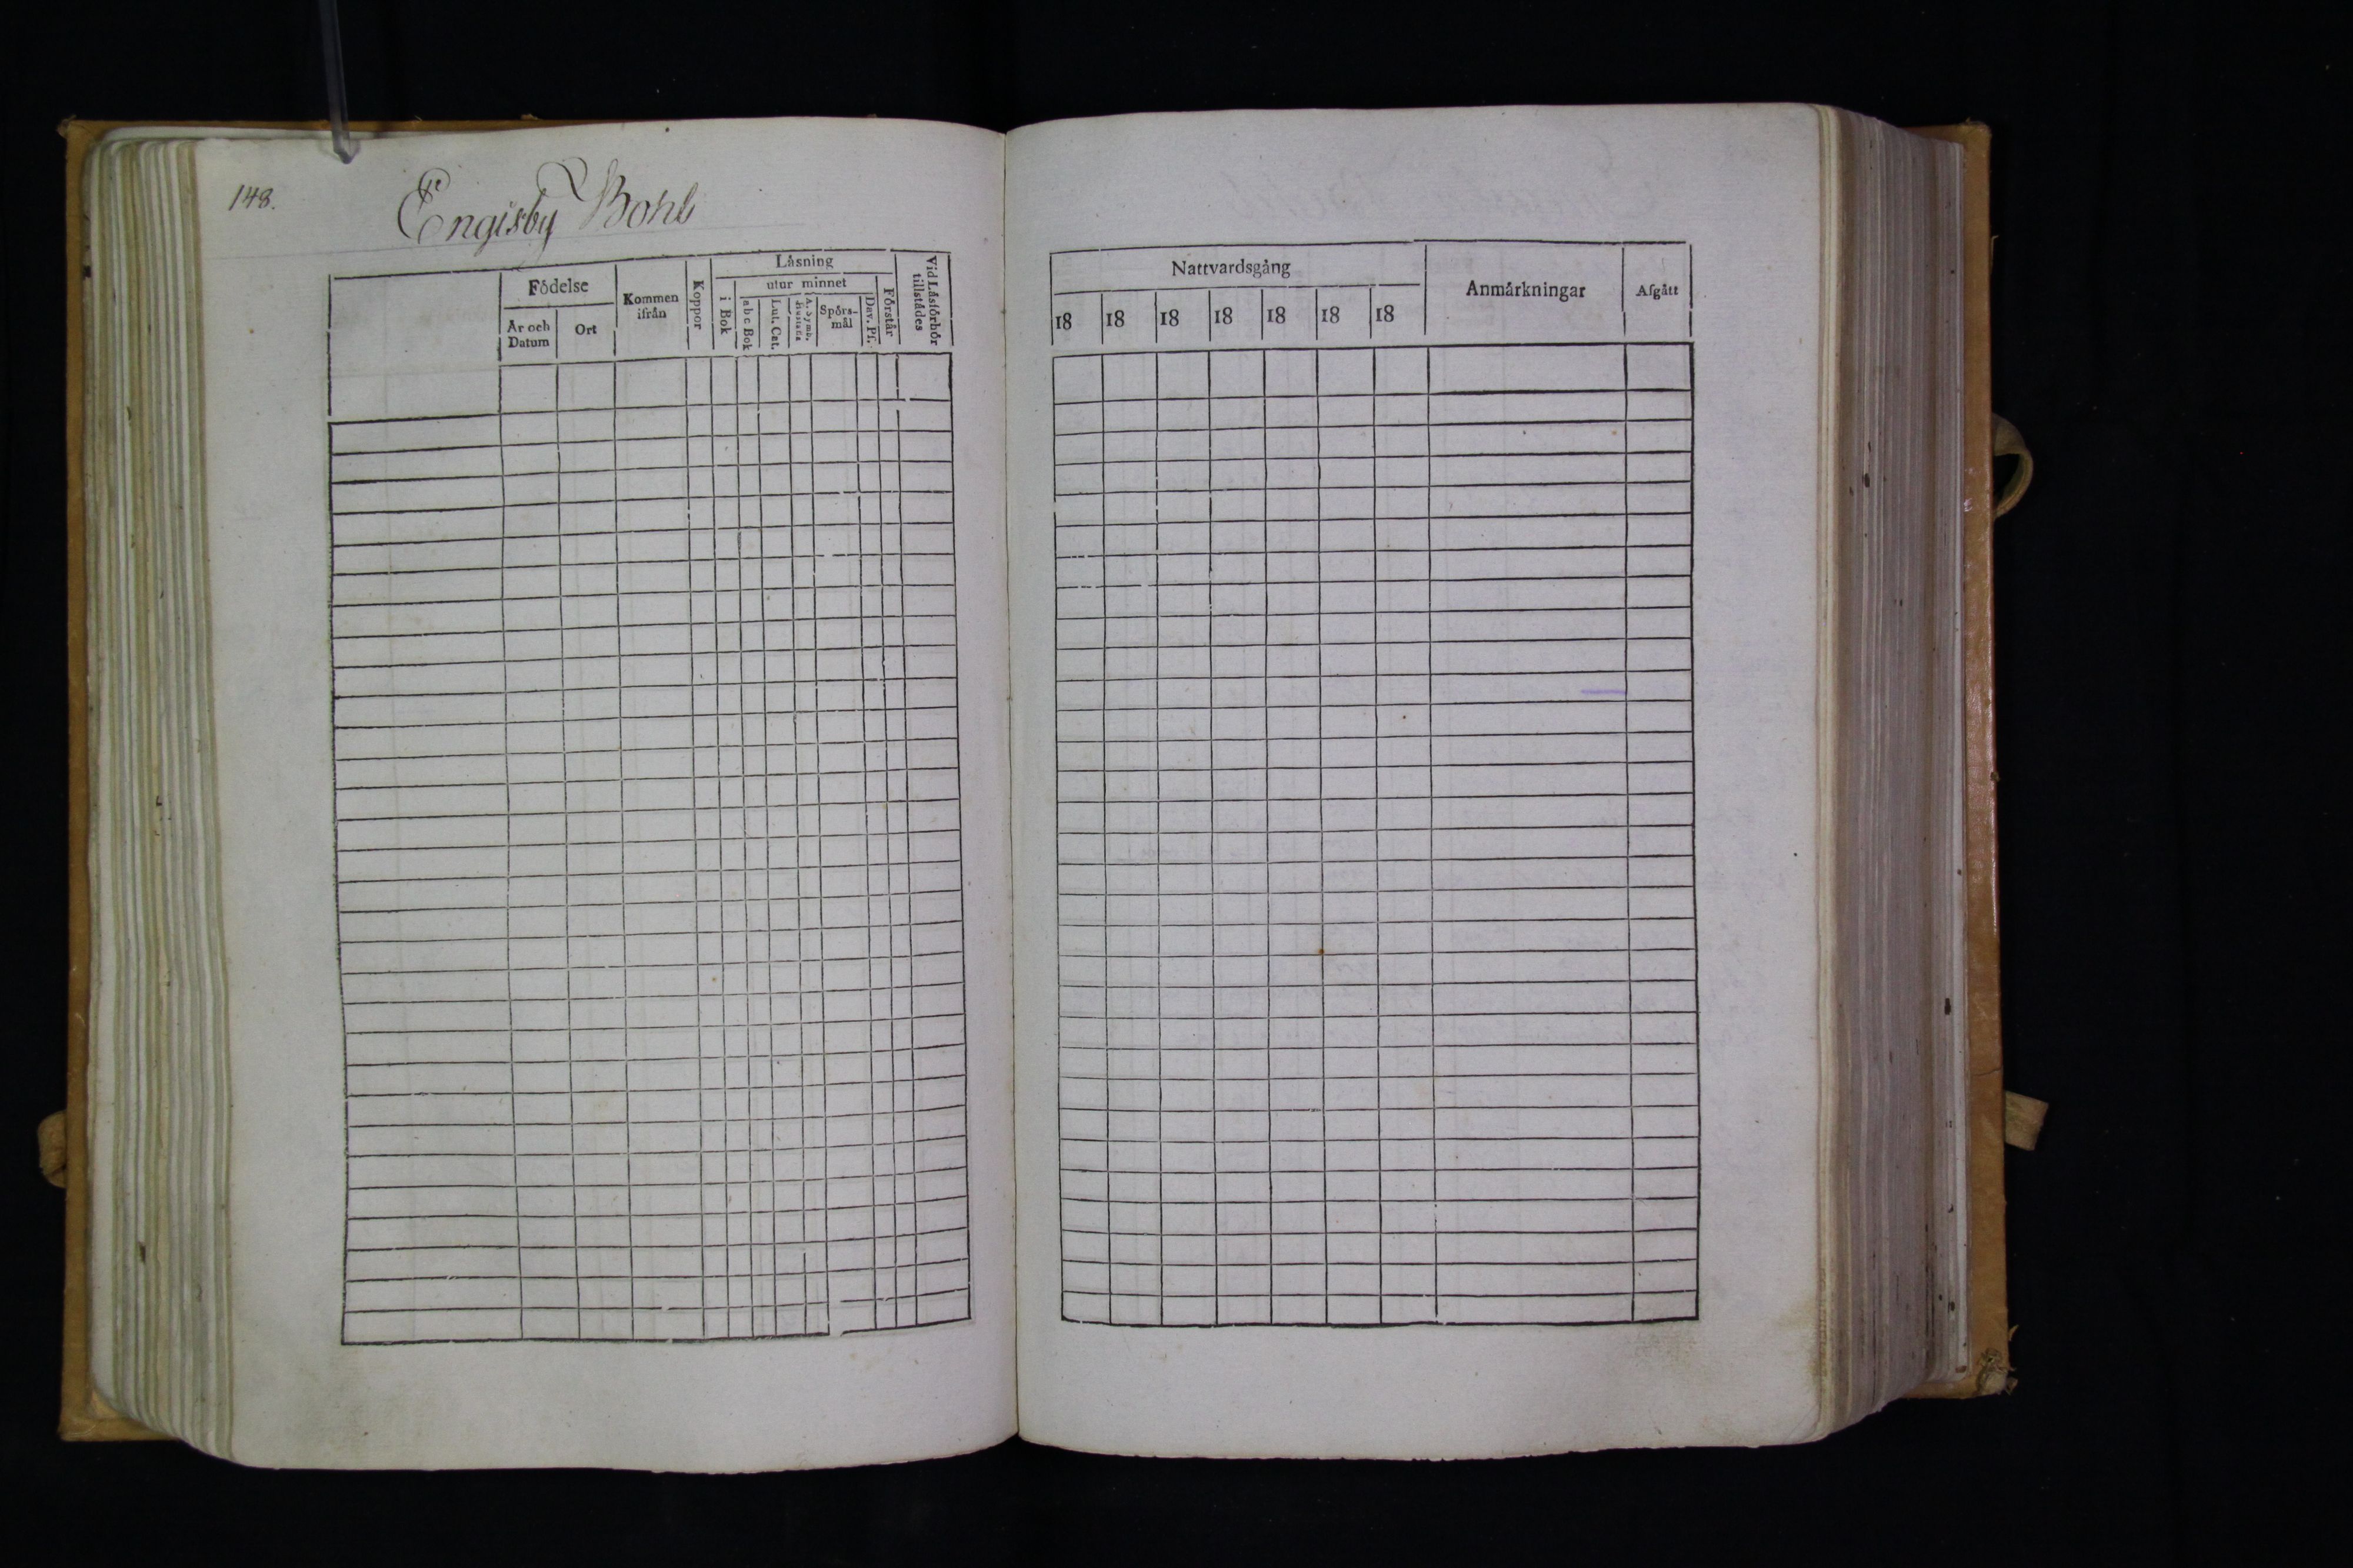 148.
Engisby Bohl
Födelse
År och
Datum
Ort
Kommen
ifrån
Koppor
Läsning
i Bok
utur minnet
abc Bok
Lut. Cat.
A. Symb.
Spörs-
mål
Dav. Ps.
Förstår
Vid Läsförhör
tillstädes
Nattvardsgång
18 18 18 18 18 18 18
Anmärkningar
Afgått